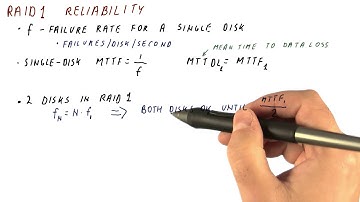 RAID 1 RELIABILITY
• f - FAILURE RATE FOR A SINGLE DISK
• FAILURES/DISK/SECOND
MEAN TIME TO DATA LOSS
• SINGLE-DISK MTTF = 1/f MTTDL₁ = MTTF₁
• 2 DISKS IN RAID 1
f_N = N·f₁ ⟹ BOTH DISKS OK UNTIL MTTF₁